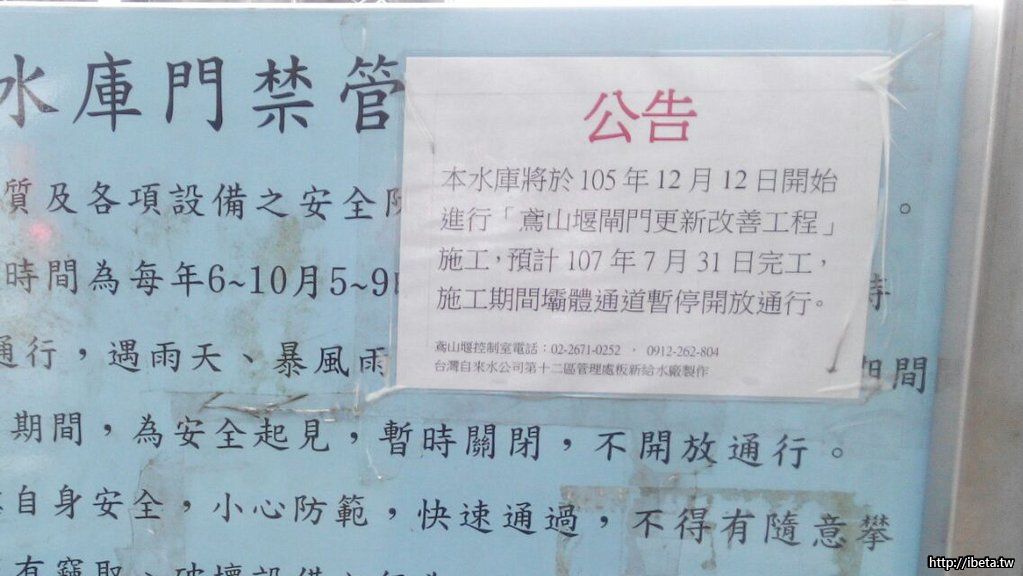 水庫門禁管
公告
本水庫將於 105 年 12 月 12 日開始
進行「鳶山堰閘門更新改善工程」
施工，預計 107 年 7 月 31 日完工，
施工期間壩體通道暫停開放通行。
鳶山堰控制室電話：02-2671-0252 ， 0912-262-804
台灣自來水公司第十二區管理處板新給水廠製作
質及各項設備之安全 。
時間為每年6~10月5~9
通行，遇雨天、暴風雨 期間
期間，為安全起見，暫時關閉，不開放通行。
自身安全，小心防範，快速通過，不得有隨意攀
有竊取、破壞設備
http://ibeta.tw